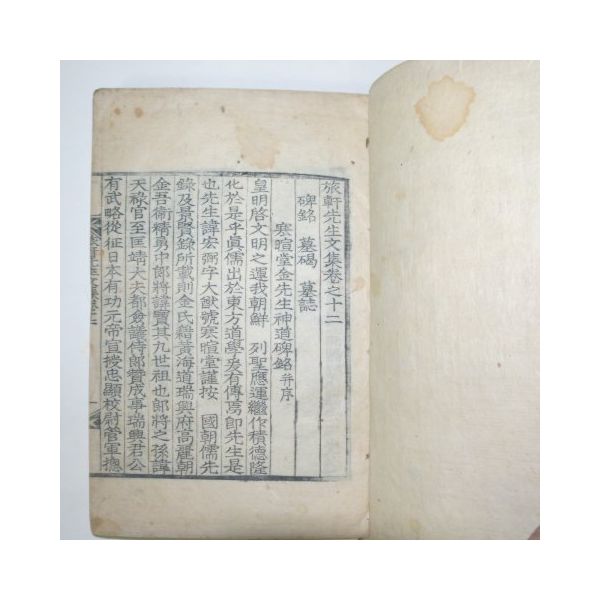 旅軒先生文集卷之十二
碑銘 墓碣 墓誌
寒暄堂金先生神道碑銘 幷序
皇明啓文明之運我朝鮮 列聖應運繼作積德隆
化於是乎眞儒出於東方道學爰有傳焉卽先生是
也先生諱宏弼字大猷號寒暄堂謹按 國朝儒先
錄及景賢錄所載則金氏籍黃海道瑞興府高麗朝
金吾衛精勇中郞將諱寶其九世祖也郞將之孫諱
天祿官至匡靖大夫都僉議侍郞贊成事瑞興君公
有武略從征日本有功元帝宣授忠顯校尉管軍摠